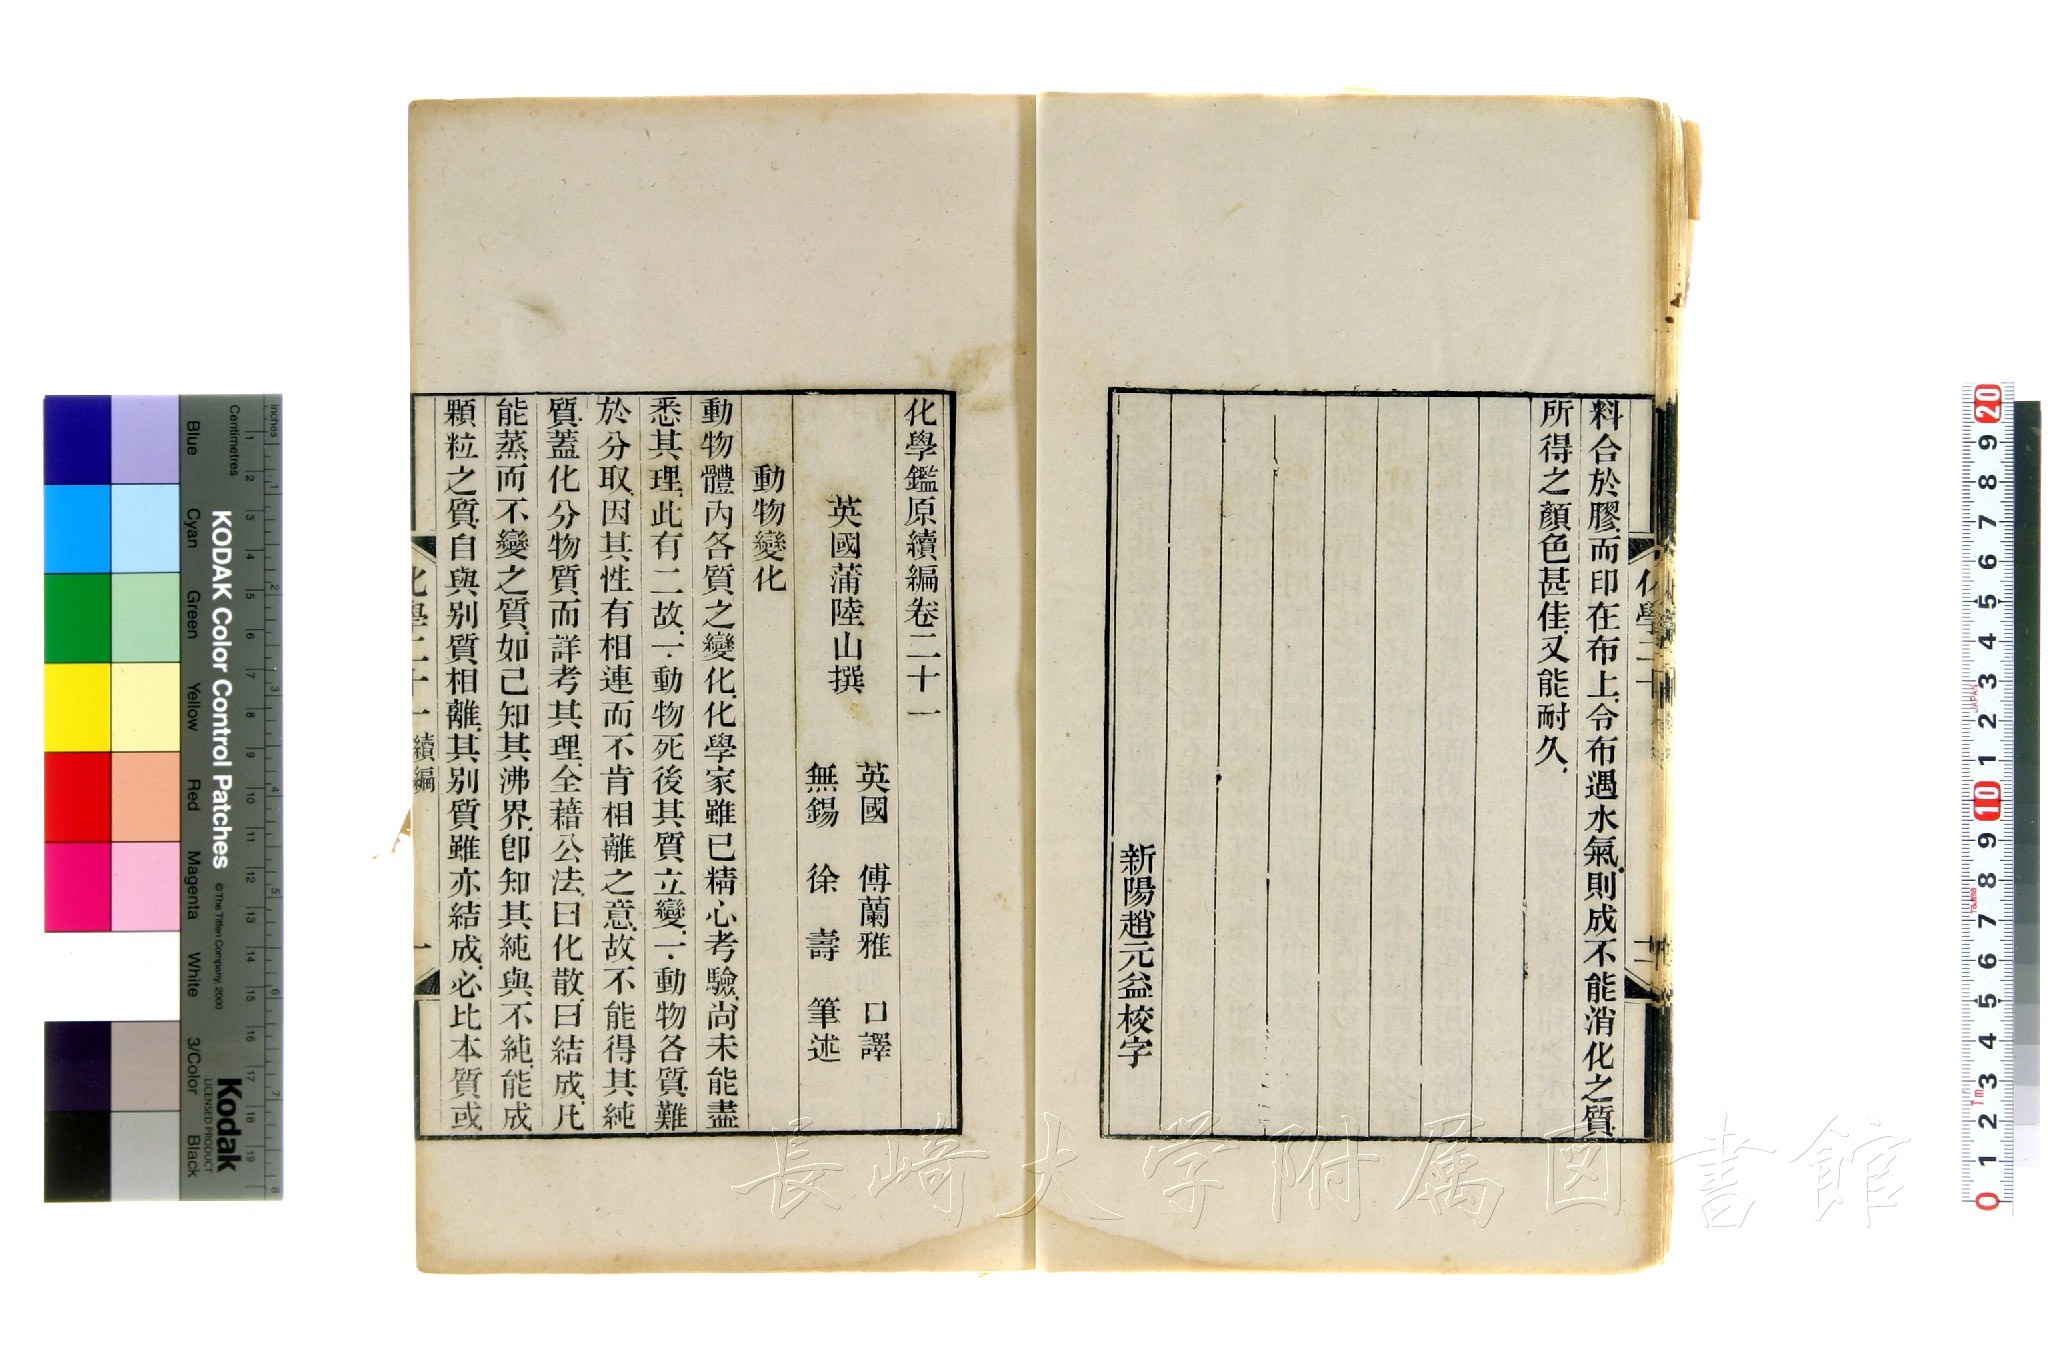 料合於膠、而印在布上、令布遇水氣、則成不能消化之質、
所得之顏色甚佳、又能耐久、
新陽趙元益校字
化學鑑原續編卷二十一
英國蒲陸山撰
英國 傅蘭雅 口譯
無錫 徐壽 筆述
動物變化
動物體內各質之變化、化學家雖已精心考驗、尚未能盡
悉其理、此有二故、一、動物死後其質立變、一、動物各質難
於分取、因其性有相連而不肯相離之意、故不能得其純
質、蓋化分物質、而詳考其理、全藉公法、曰化散、曰結成、凡
能蒸而不變之質、如已知其沸界、卽知其純與不純、能成
顆粒之質、自與別質相離、其別質雖亦結成、必比本質或
化學二十一 續編
一
化學二十
長崎大学附属図書館
KODAK Color Control Patches
© The Tiffen Company, 2000
Kodak
LICENSED PRODUCT
Inches
Centimetres
Blue
Cyan
Green
Yellow
Red
Magenta
White
3/Color
Black
1 2 3 4 5 6 7 8
1 2 3 4 5 6 7 8 9 10 11 12 13 14 15 16 17 18 19
20 9 8 7 6 5 4 3 2 1 10 9 8 7 6 5 4 3 2 1 0
JAPAN
Tajima